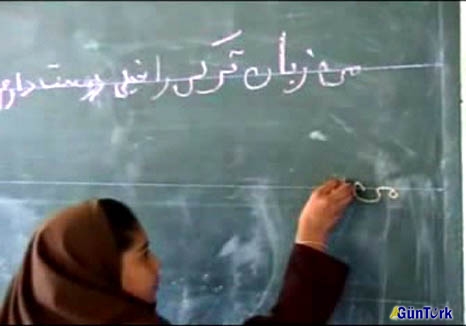 من زبان ترکی را خیلی دوست دارم
من
GünTürk